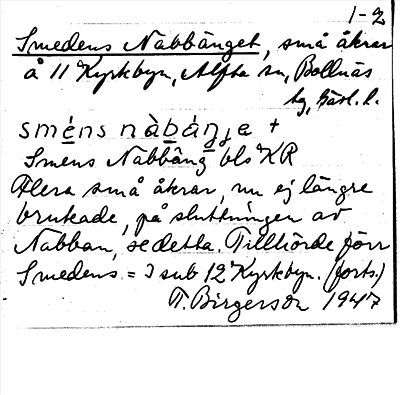 1-2
Smedens Nabbänget, små åkrar
å 11 Kyrkbyn, Alfta sn, Bollnäs
tg, Gävl. l.
sméns nàbáŋ,e +
Smens Nabbäng bls KR
Flera små åkrar, nu ej längre
brukade, på sluttningen av
Nabban, se detta. Tillhörde förr
Smedens = I sub 12 Kyrkbyn. (forts.)
T. Birgerson 1947